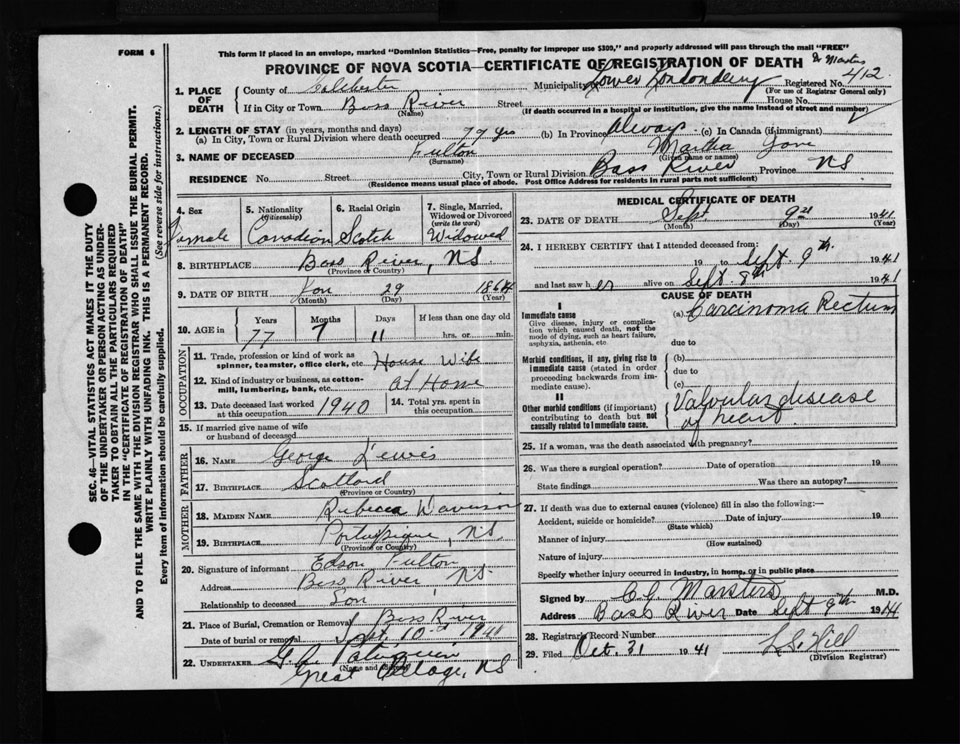 FORM 6
This form if placed in an envelope, marked "Dominion Statistics—Free, penalty for improper use $300," and properly addressed will pass through the mail "FREE"
PROVINCE OF NOVA SCOTIA—CERTIFICATE OF REGISTRATION OF DEATH
Dr Marsters
1. PLACE OF DEATH
County of Colchester Municipality Lower Londonderry Registered No. 412
(For use of Registrar General only)
If in City or Town Bass River Street House No.
(Name) (If death occurred in a hospital or institution, give the name instead of street and number)
2. LENGTH OF STAY (in years, months and days)
(a) In City, Town or Rural Division where death occurred 77 yrs (b) In Province Always (c) In Canada (if immigrant)
3. NAME OF DECEASED Fulton Martha Jane
(Surname) (Given name or names)
RESIDENCE No. Street City, Town or Rural Division Bass River Province NS
(Residence means usual place of abode. Post Office Address for residents in rural parts not sufficient)
4. Sex Female
5. Nationality (Citizenship) Canadian
6. Racial Origin Scotch
7. Single, Married, Widowed or Divorced (write the word) Widowed
8. BIRTHPLACE Bass River, NS
(Province or Country)
9. DATE OF BIRTH Jan 29 1864
(Month) (Day) (Year)
10. AGE in Years Months Days If less than one day old
77 7 11 hrs. or min.
OCCUPATION
11. Trade, profession or kind of work as spinner, teamster, office clerk, etc. House Wife
12. Kind of industry or business, as cotton-mill, lumbering, bank, etc. at Home
13. Date deceased last worked at this occupation 1940
14. Total yrs. spent in this occupation
15. If married give name of wife or husband of deceased
FATHER
16. NAME George Lewis
17. BIRTHPLACE Scotland
(Province or Country)
MOTHER
18. MAIDEN NAME Rebecca Davison
19. BIRTHPLACE Portapique, NS
(Province or Country)
20. Signature of informant Edson Fulton
Address Bass River NS
Relationship to deceased Son
21. Place of Burial, Cremation or Removal Bass River
Date of burial or removal Sept. 10 1941
22. UNDERTAKER G.
(Name and address)
Great Village, NS
MEDICAL CERTIFICATE OF DEATH
23. DATE OF DEATH Sept 9 1941
(Month) (Day) (Year)
24. I HEREBY CERTIFY that I attended deceased from:
19 to Sept 9th 1941
and last saw her alive on Sept. 8th 1941
CAUSE OF DEATH
I
Immediate cause
Give disease, injury or complication which caused death, not the mode of dying, such as heart failure, asphyxia, asthenia, etc.
(a) Carcinoma Rectum
due to
Morbid conditions, if any, giving rise to immediate cause (stated in order proceeding backwards from immediate cause).
(b)
due to
(c)
II
Other morbid conditions (if important) contributing to death but not causally related to immediate cause.
Valvular disease
of heart
25. If a woman, was the death associated with pregnancy?
26. Was there a surgical operation? Date of operation 19
State findings Was there an autopsy?
27. If death was due to external causes (violence) fill in also the following:—
Accident, suicide or homicide? Date of injury 19
(State which)
Manner of injury
(How sustained)
Nature of injury
Specify whether injury occurred in industry, in home, or in public place
Signed by Marsters M.D.
Address Bass River Date Sept 9th 1941
28. Registrar's Record Number
29. Filed Oct. 31 1941 Hill
(Division Registrar)
SEC. 46—VITAL STATISTICS ACT MAKES IT THE DUTY
OF THE UNDERTAKER OR PERSON ACTING AS UNDER-
TAKER TO OBTAIN ALL THE PARTICULARS REQUIRED
IN THE "CERTIFICATE OF REGISTRATION OF DEATH"
AND TO FILE THE SAME WITH THE DIVISION REGISTRAR WHO SHALL ISSUE THE BURIAL PERMIT.
WRITE PLAINLY WITH UNFADING INK. THIS IS A PERMANENT RECORD.
Every item of information should be carefully supplied. (See reverse side for instructions.)